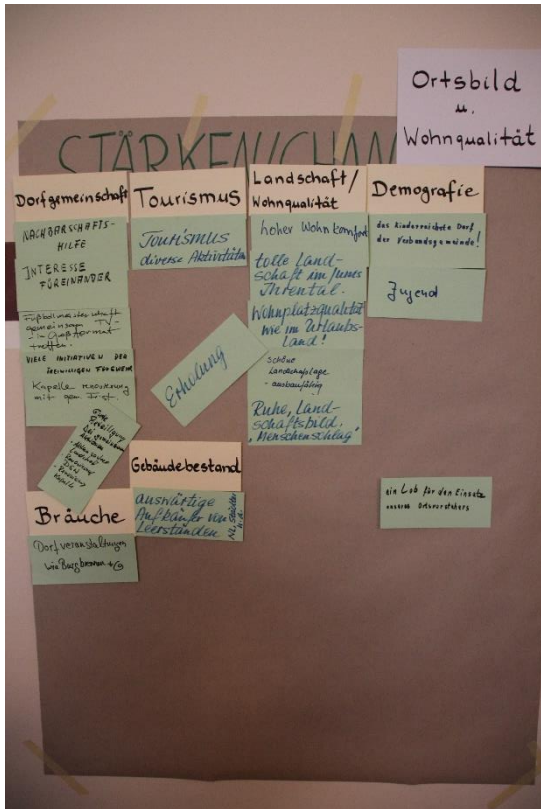 Ortsbild
u.
Wohnqualität
STÄRKEN/CHAN
Dorfgemeinschaft
NACHBARSCHAFTS-
HILFE
INTERESSE
FÜREINANDER
Fußballmeisterschaft
gemeinsam TV
in Großformat
treffen.
VIELE INITIATIVEN DER
FREIWILLIGEN FEUERWEHR
Kapelle
mit gem. Fest.
Gute
Beteiligung
bei gemeinsamen
Aktionen
Kapelle
Bräuche
Dorfveranstaltungen
wie Burgbrennen +
Tourismus
Tourismus
diverse Aktivitäten
Erholung
Gebäudebestand
auswärtige
Aufkäufer von
Leerständen
Landschaft/
Wohnqualität
hoher Wohnkomfort
tolle Land-
schaft im
Ihrental.
Wohnplatzqualität
wie im Urlaubs-
Land!
schöne
Landschaftslage
- ausbaufähig
Ruhe, Land-
schaftsbild.
"Menschenschlag"
Demografie
das kinderreichste Dorf
der Verbandsgemeinde!
Jugend
ein Lob für den Einsatz
unseres Ortsvorstehers